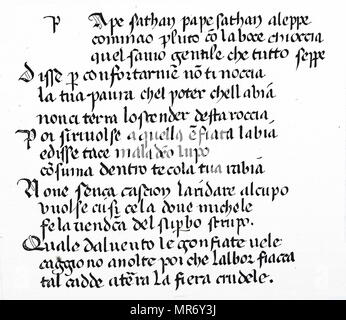 P Ape sathan pape sathan aleppe
cominao pluto cō la boce chioccia
quel savio gentile che tutto seppe
Disse p confortarme nō ti noccia
la tua paura chel poter chell abiā
non ci terra lo scender desta roccia
Poi si rivolse a quella ēfiata labia
e disse tace maladēo lupo
cōsuma dentro te co la tua rabia
None senca casgion laridare al cupo
vuolse cusi ce la dove michele
fe la vendcā del supbo strupo.
Quale dal vento le gonfiate vele
caggiono a nolte poi che lalbor fiacca
tal cadde a terā la fiera crudele.
alamy
Image ID: MR6Y3J
www.alamy.com